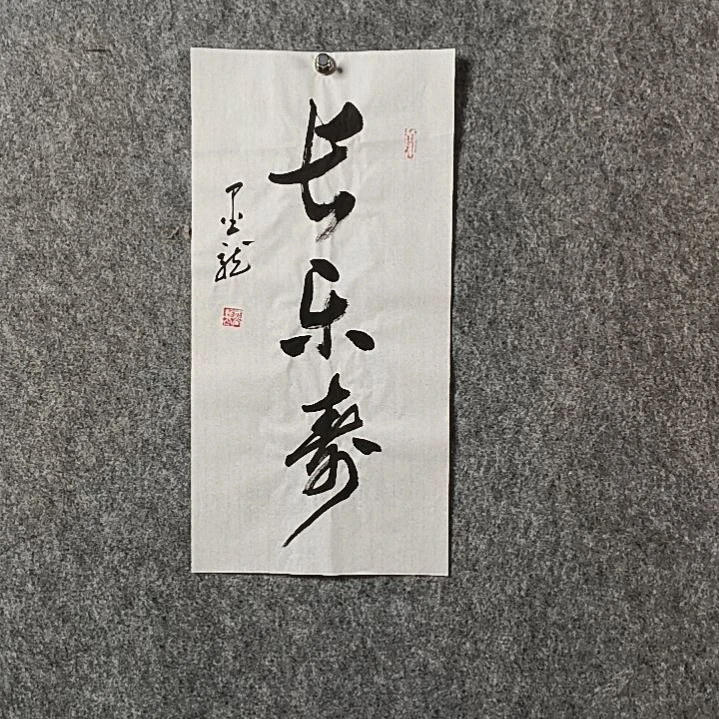 长乐寿
墨龙